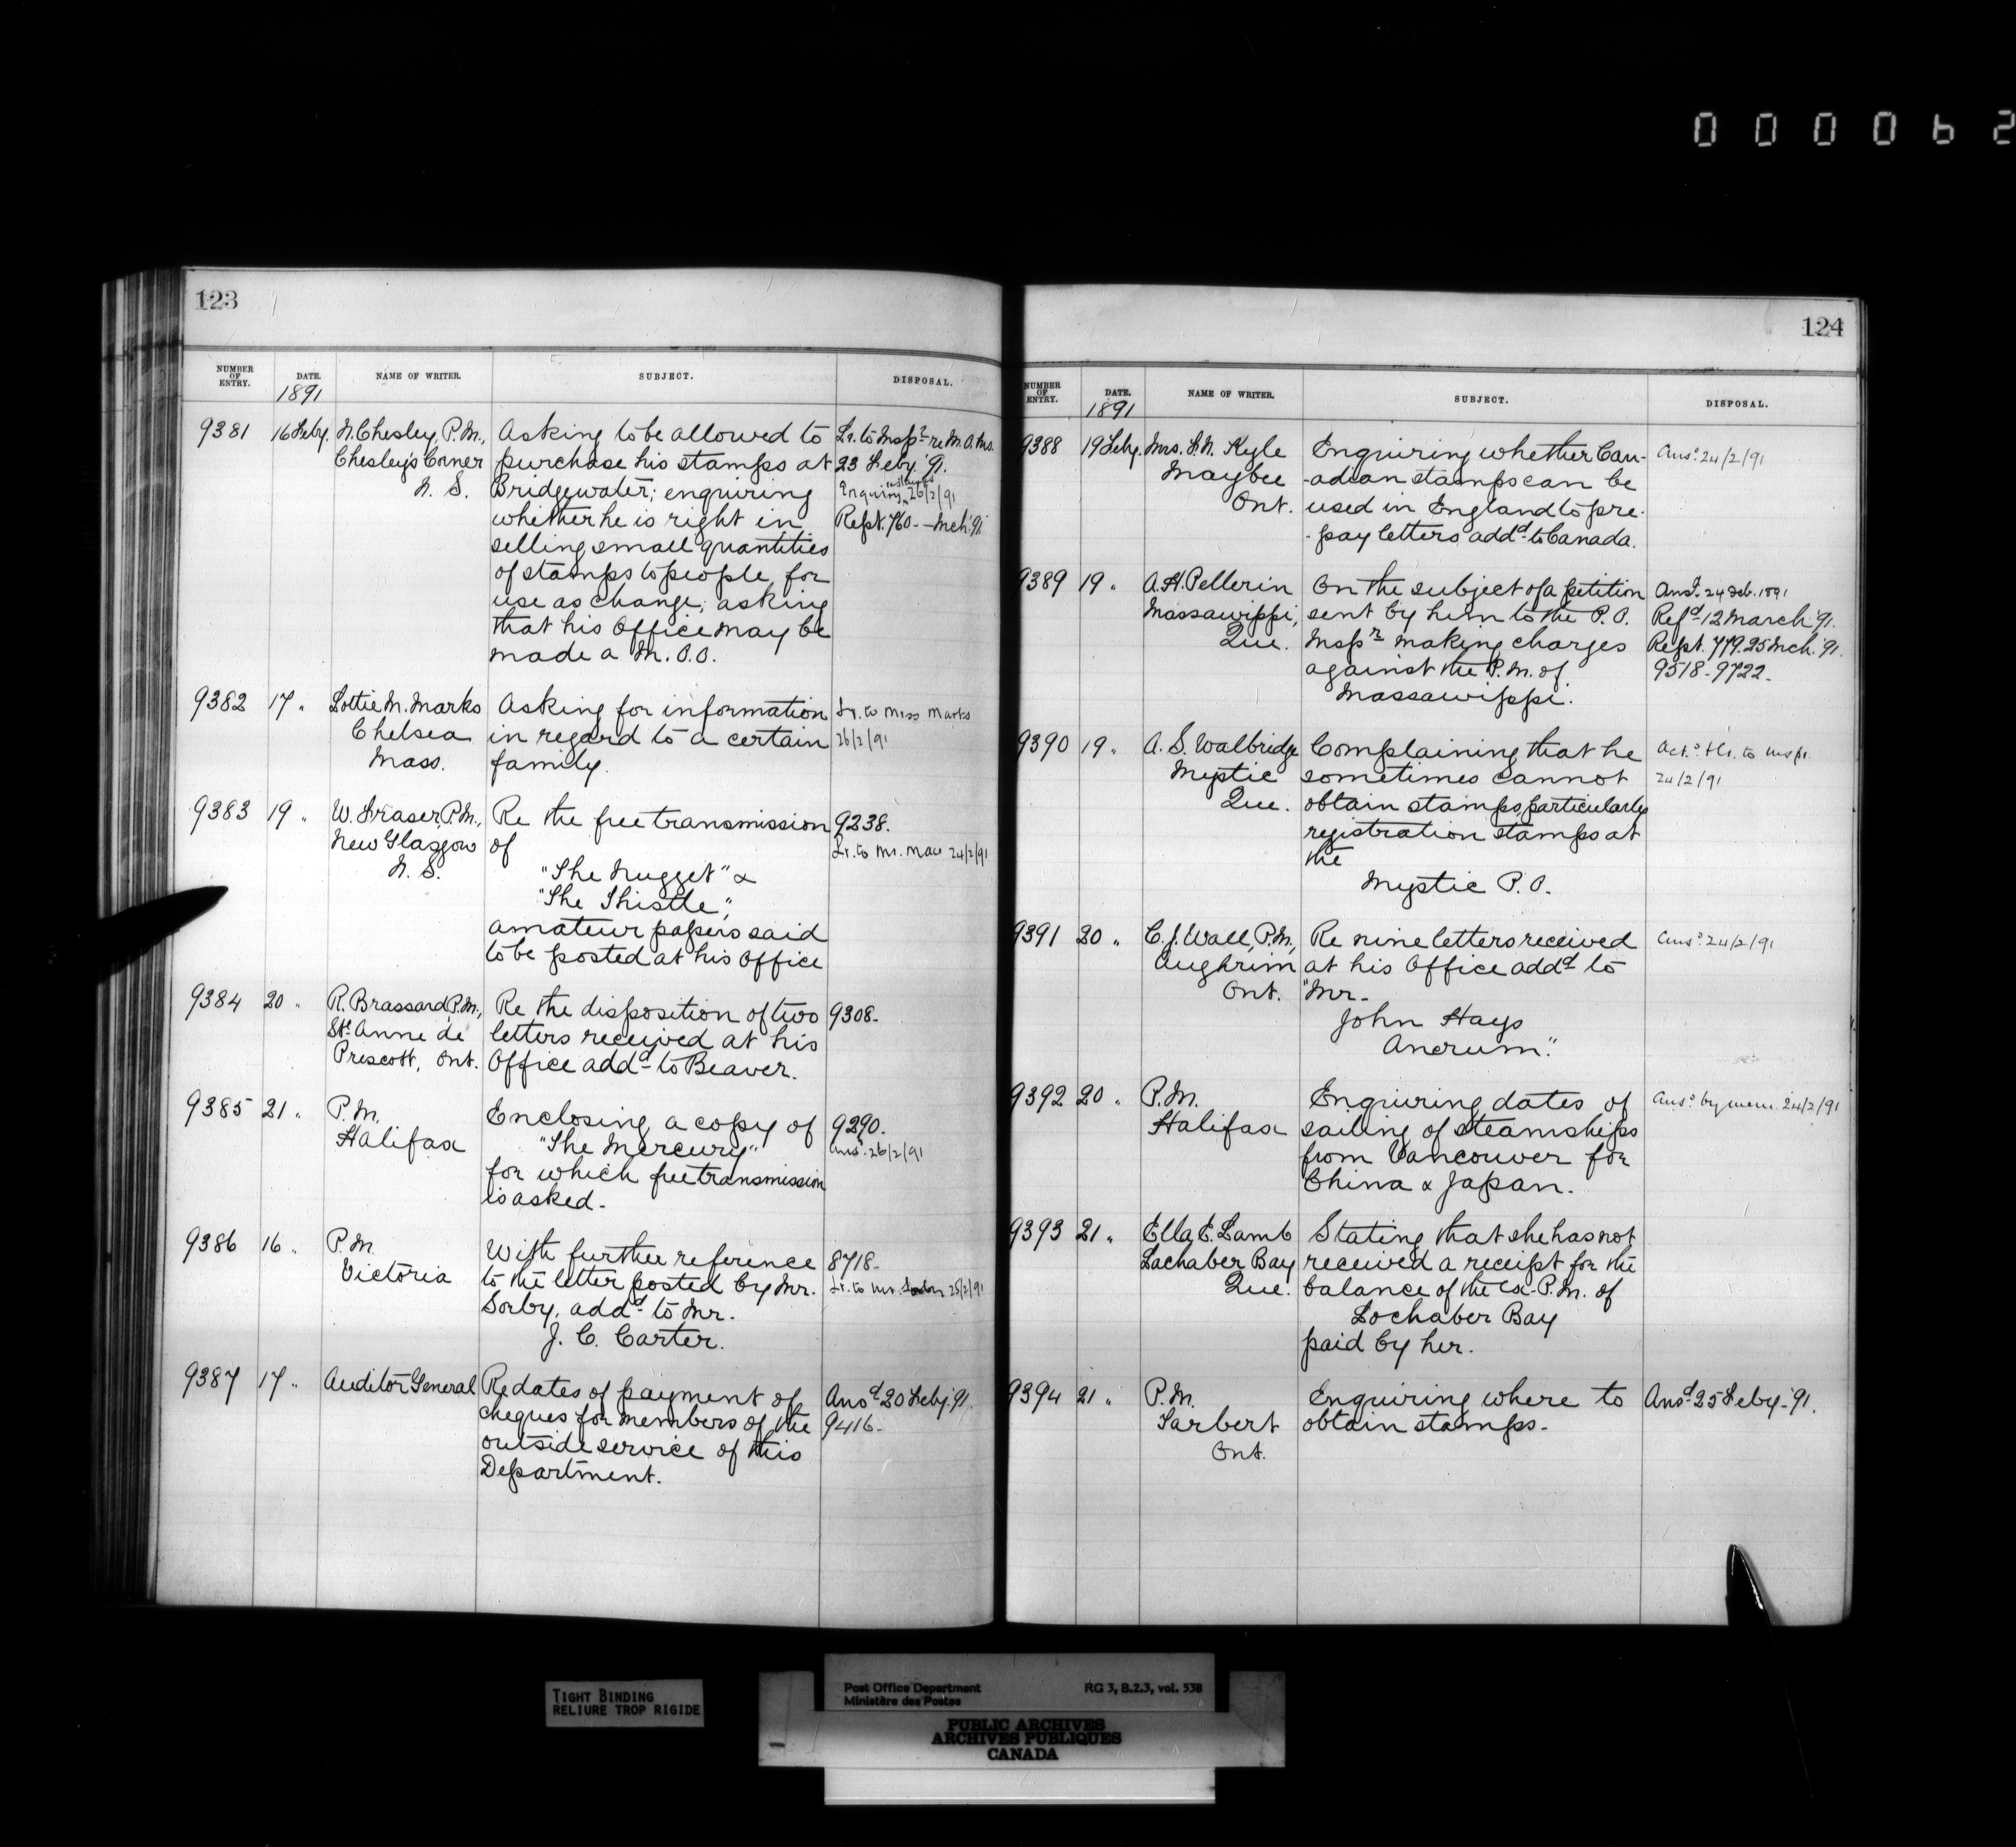 0 0 0 0 6 2
123
NUMBER OF ENTRY. DATE. NAME OF WRITER. SUBJECT. DISPOSAL.
1891
9381 16 Feby. N. Chesley, P.M., Asking to be allowed to Lr. to Inspr re M.O. Ms.
Chesley's Corner purchase his stamps at 23 Feby. '91.
N. S. Bridgewater; enquiring Enquiry 26/2/91
whether he is right in Rept. 760 - Mch. '91
selling small quantities
of stamps to people, for
use as change; asking
that his Office may be
made a M.O.O.
9382 17 " Lottie M. Marks Asking for information Lr. to Miss Marks
Chelsea in regard to a certain 26/2/91
Mass. family.
9383 19 " W. Fraser, P.M., Re the free transmission 9238.
New Glasgow of Lr. to Mr. 24/2/91
N. S. "The Nugget" &
"The Thistle",
amateur papers said
to be posted at his Office
9384 20 " R. Brassard, P.M., Re the disposition of two 9308-
Ste. Anne de letters received at his
Prescott, Ont. Office addd to Beaver.
9385 21 " P.M. Enclosing a copy of 9290.
Halifax "The Mercury" Ansd. 26/2/91
for which free transmission
is asked.
9386 16 " P.M. With further reference 8718-
Victoria to the letter posted by Mr. Lr. to Mr. 25/2/91
Sorby, addd to Mr.
J. C. Carter.
9387 17 " Auditor General Re dates of payment of Ansd 20 Feby. '91.
cheques for members of the 9416-
outside service of this
Department.
124
NUMBER OF ENTRY. DATE. NAME OF WRITER. SUBJECT. DISPOSAL.
1891
9388 19 Feby. Mrs. F.N. Kyle Enquiring whether Can- Ansd. 24/2/91
Maybee -adian stamps can be
Ont. used in England to pre-
-pay letters addd to Canada.
9389 19 " A.H. Pellerin On the subject of a petition Ansd. 24 Feb. 1891
Massawippi, sent by him to the P.O. Refd 12 March '91.
Que. Inspr making charges Rept. 779. 25 Mch. '91.
against the P.M. of 9518-9722-
Massawippi.
9390 19 " A. S. Walbridge Complaining that he Ackd. & Lr. to Inspr.
Mystic sometimes cannot 24/2/91
Que. obtain stamps, particularly
registration stamps at
the
Mystic P.O.
9391 20 " C. J. Wall, P.M., Re nine letters received Ansd. 24/2/91
Aughrim at his Office addd to
Ont. "Mr.
John Hays
Ancrum."
9392 20 " P.M. Enquiring dates of Ansd. by mem. 24/2/91
Halifax sailing of steamships
from Vancouver for
China & Japan.
9393 21 " Ella E. Lamb Stating that she has not
Lochaber Bay received a receipt for the
Que. balance of the ex-P.M. of
Lochaber Bay
paid by her.
9394 21 " P.M. Enquiring where to Ansd 25 Feby. '91.
Tarbert obtain stamps.
Ont.
TIGHT BINDING
RELIURE TROP RIGIDE
Post Office Department RG 3, B.2.3, vol. 538
Ministère des Postes
PUBLIC ARCHIVES
ARCHIVES PUBLIQUES
CANADA